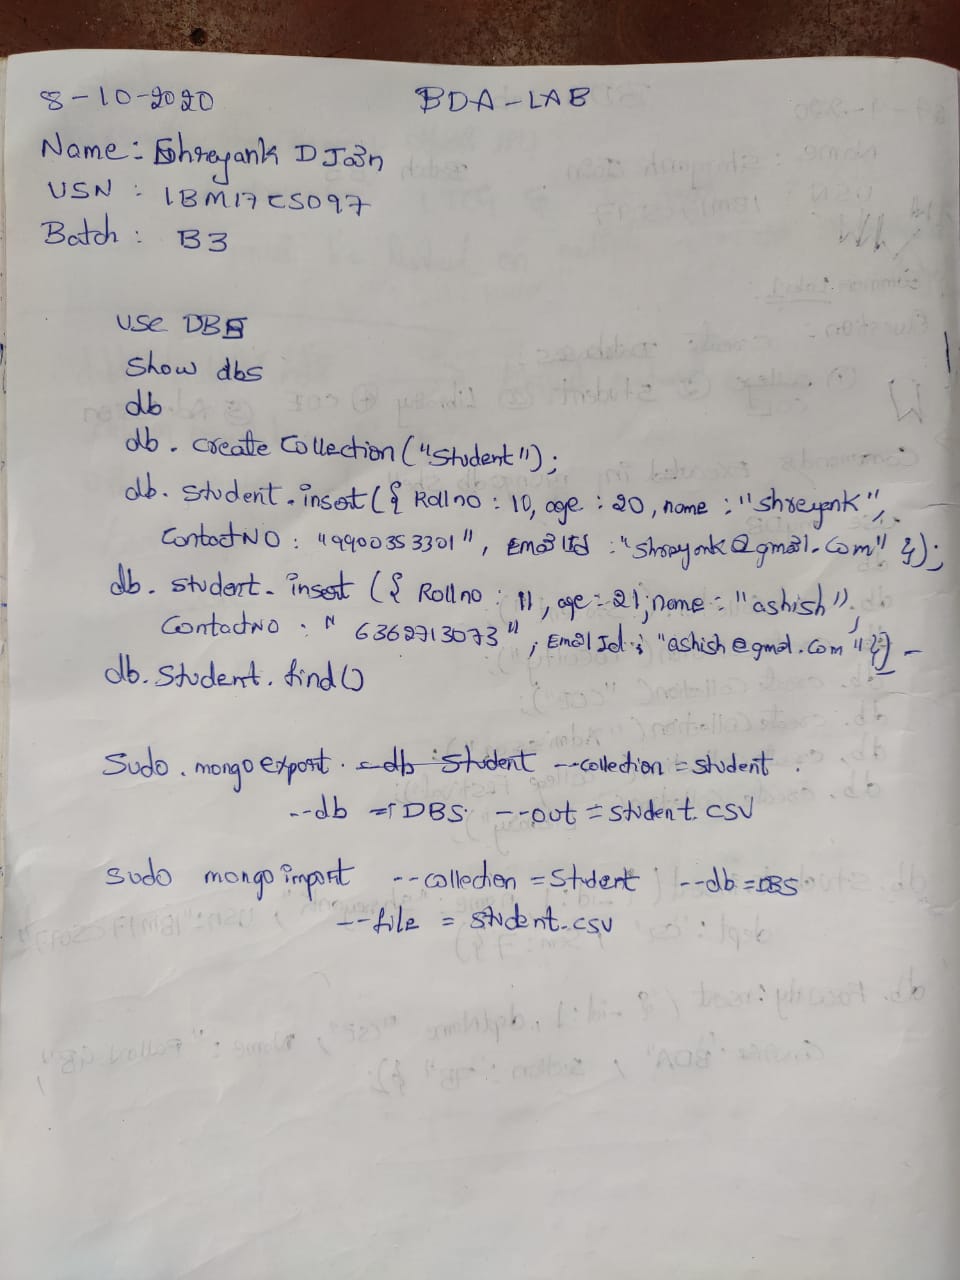 8-10-2020 BDA-LAB
Name: Shreyank D Jain
USN : 1BM17CS097
Batch : B3
use DBS
Show dbs
db
db. create Collection ("Student");
db. Student.insert({ Rollno : 10, age : 20, name : "Shreyank",
ContactNO : "9900353301", EmailId : "Shreyank@gmail.com" });
db. student. insert ({ Rollno : 11, age : 21, name : "ashish",
ContactNO : " 6362713073 ", EmailId : "ashish@gmail.com" })
db. Student. find()
Sudo . mongoexport . --collection = student .
--db = DBS. --out = student.csv
sudo mongoimport --collection = Student --db = DBS
--file = student.csv